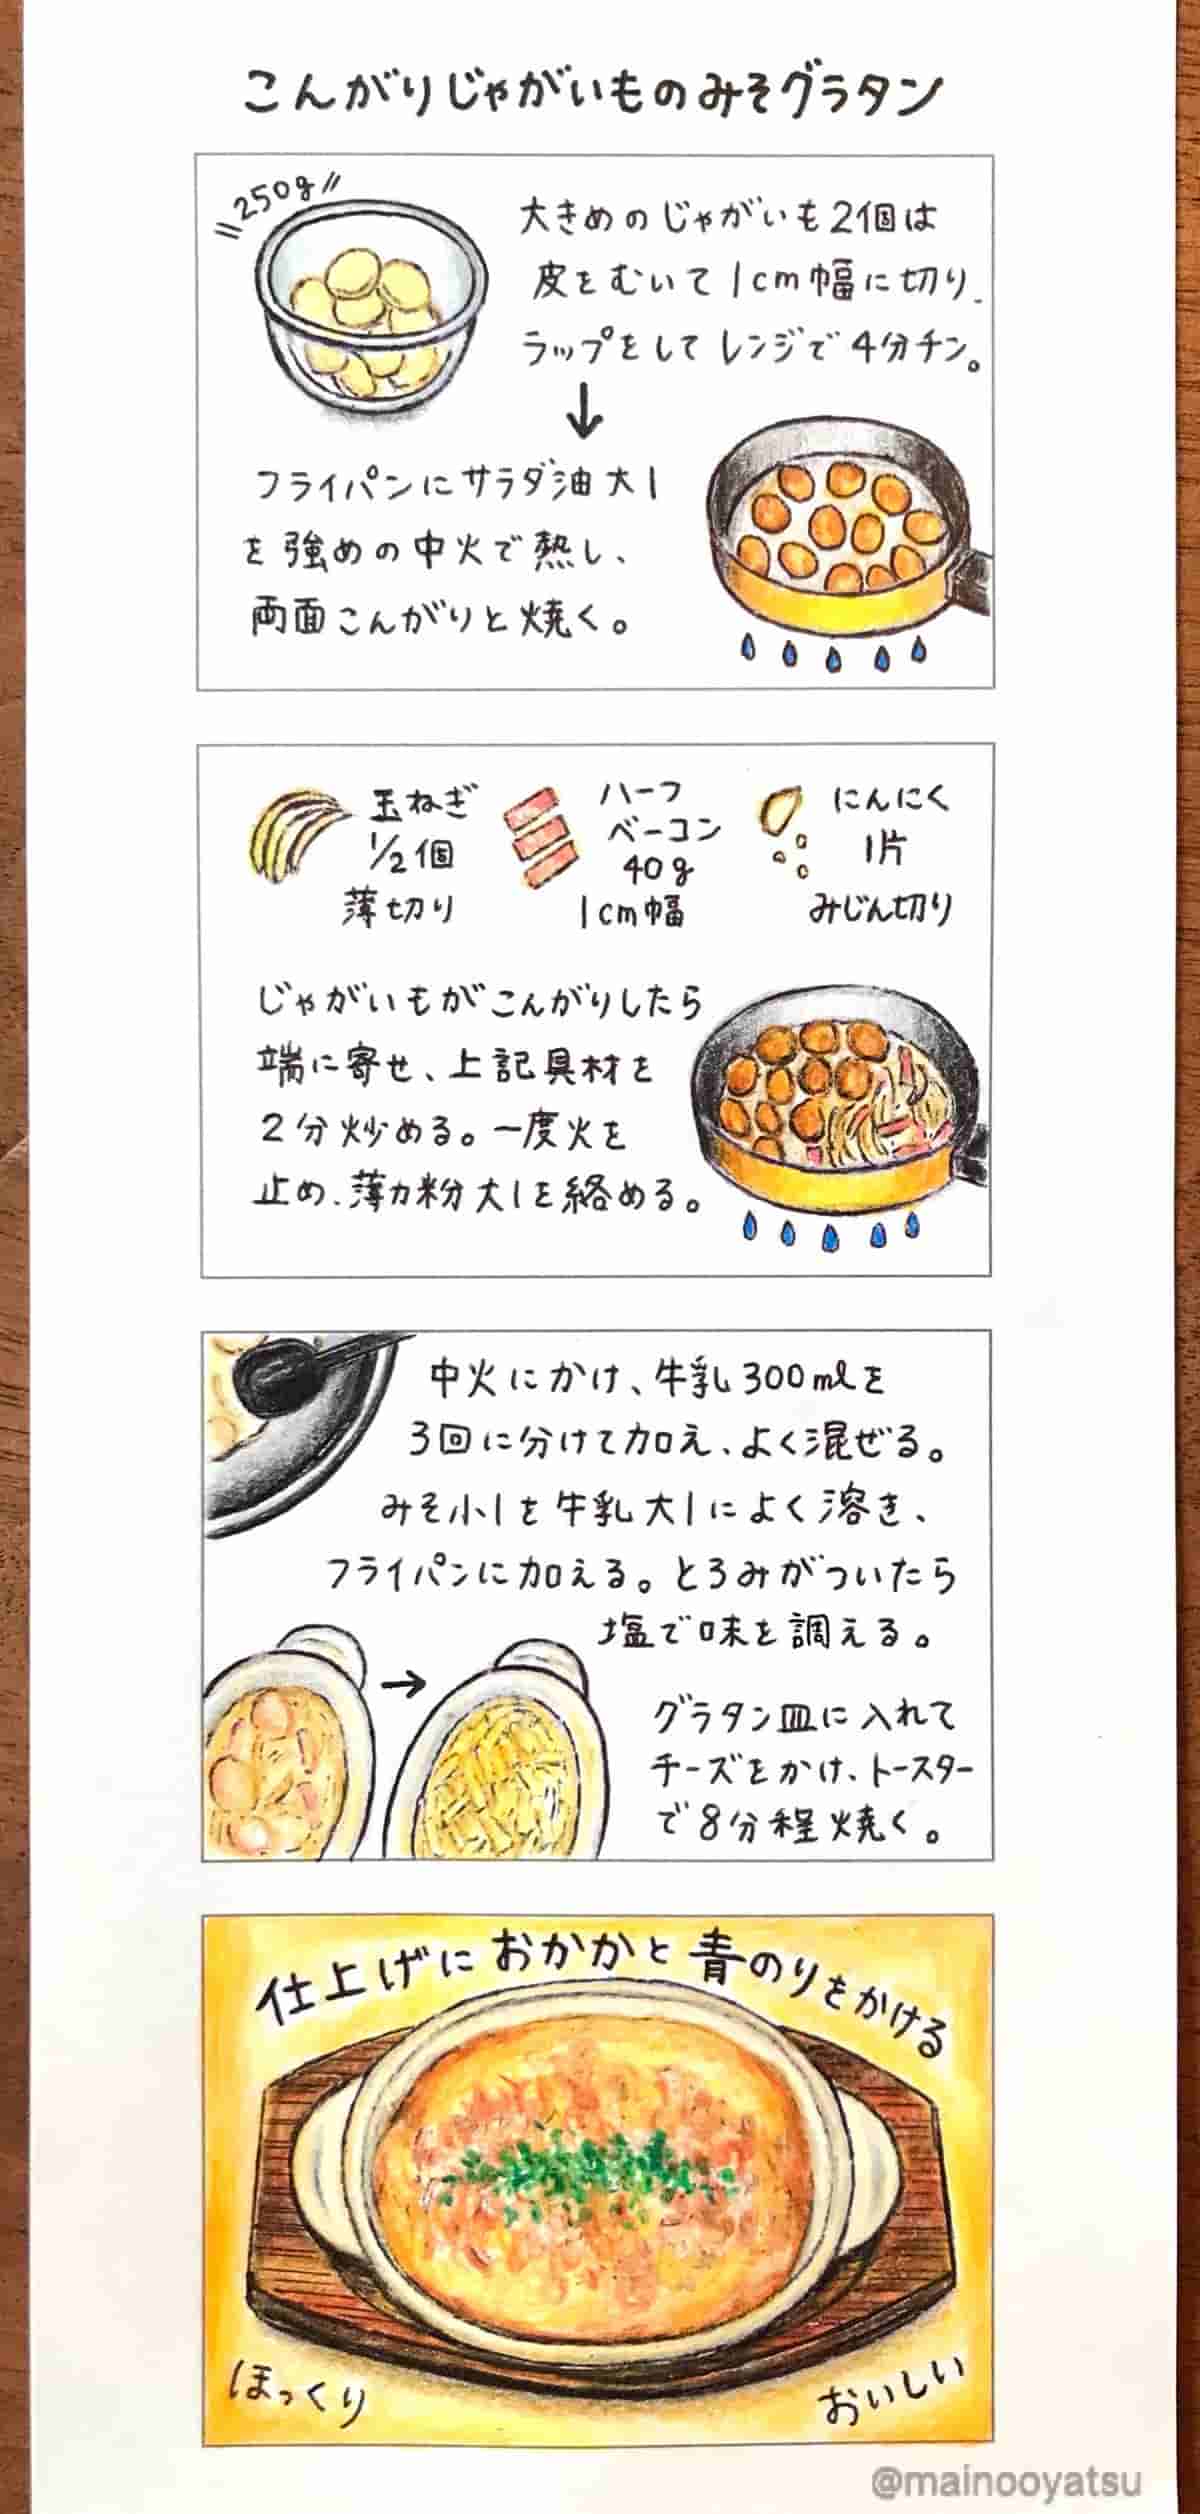 こんがりじゃがいものみそグラタン
250g
大きめのじゃがいも2個は
皮をむいて1cm幅に切り、
ラップをしてレンジで4分チン。
↓
フライパンにサラダ油大1
を強めの中火で熱し、
両面こんがりと焼く。
玉ねぎ
1/2個
薄切り
ハーフ
ベーコン
40g
1cm幅
にんにく
1片
みじん切り
じゃがいもがこんがりしたら
端に寄せ、上記具材を
2分炒める。一度火を
止め、薄力粉大1を絡める。
中火にかけ、牛乳300mlを
3回に分けて加え、よく混ぜる。
みそ小1を牛乳大1によく溶き、
フライパンに加える。とろみがついたら
塩で味を調える。
→
グラタン皿に入れて
チーズをかけ、トースター
で8分程焼く。
仕上げにおかかと青のりをかける
ほっくり
おいしい
@mainooyatsu